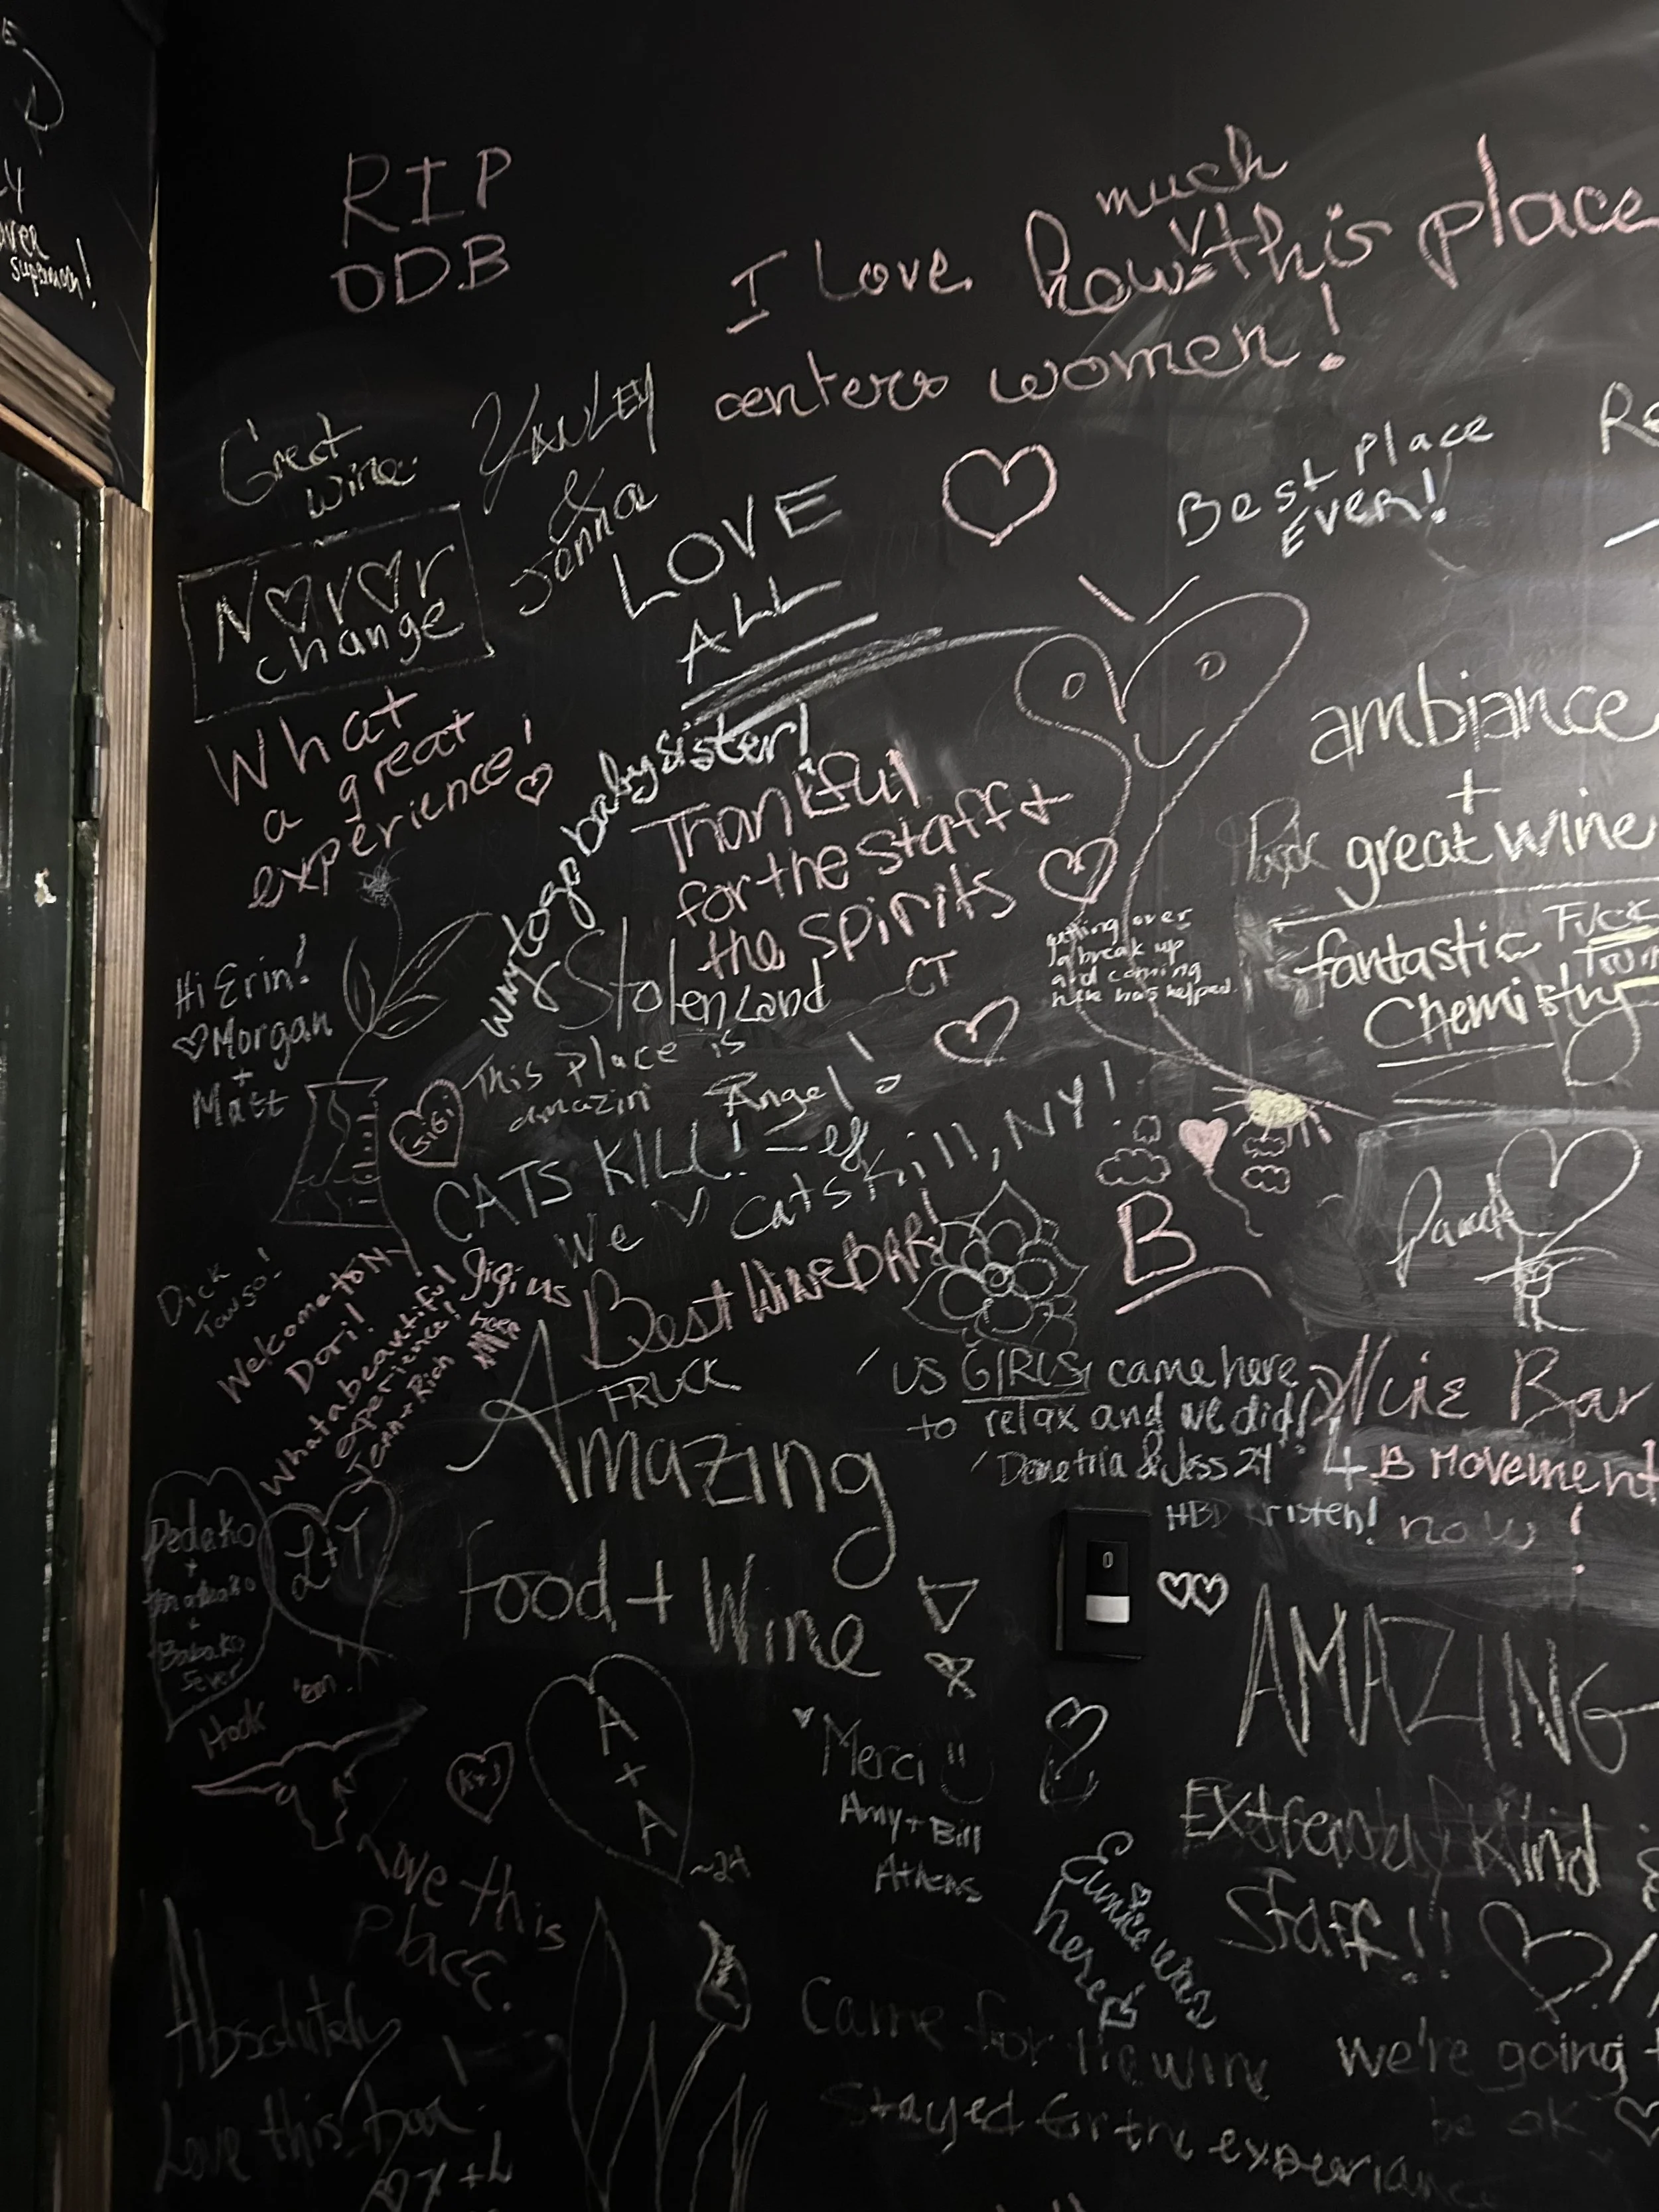 RIP
ODB
much
I Love how this place
centers women!
Great
wine
&
Jonna
LOVE
ALL
Best Place
EVER!
change
What
a great
experience!
way to go baby sister!
Thankful
for the staff +
the spirits
Stolen Land
CT
getting over
a break up
and coming
here has helped.
ambiance
+
great wine
fantastic
Chemistry
Hi Erin!
Morgan
+
Matt
This place is
amazin'
Angel!
GiGi
CATS KILL!
We Catskill, NY!
Best WINE BAR!
B
Welcome to NY
Dori!
What a beautiful
experience!
Jenn + Rich
FRUCK
Amazing
Food + Wine
US GIRLS came here
to relax and we did!
Demetria & Jess 24
Bar
4 B MOVEMENT
now!
HBD
L+T
Hook 'em
K+J
A
+
A
~24
Merci!!
Amy + Bill
Athens
AMAZING
Extremely Kind
Staff!!
Eunice was
here
Love this
place.
Absolutely
Love this bar
Came for the wine
Stayed for the
we're going
be ok